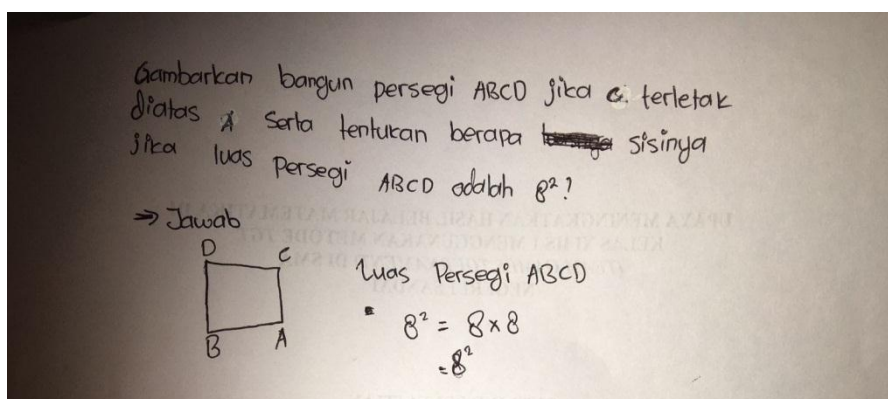 Gambarkan bangun persegi ABCD jika C. terletak
diatas A serta tentukan berapa sisinya
jika luas persegi ABCD adalah 8²?
⇒ Jawab
D C
B A
Luas Persegi ABCD
8² = 8 x 8
= 8²